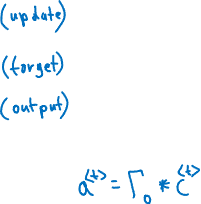 (update)
(forget)
(output)
a<t> = Γo * c<t>